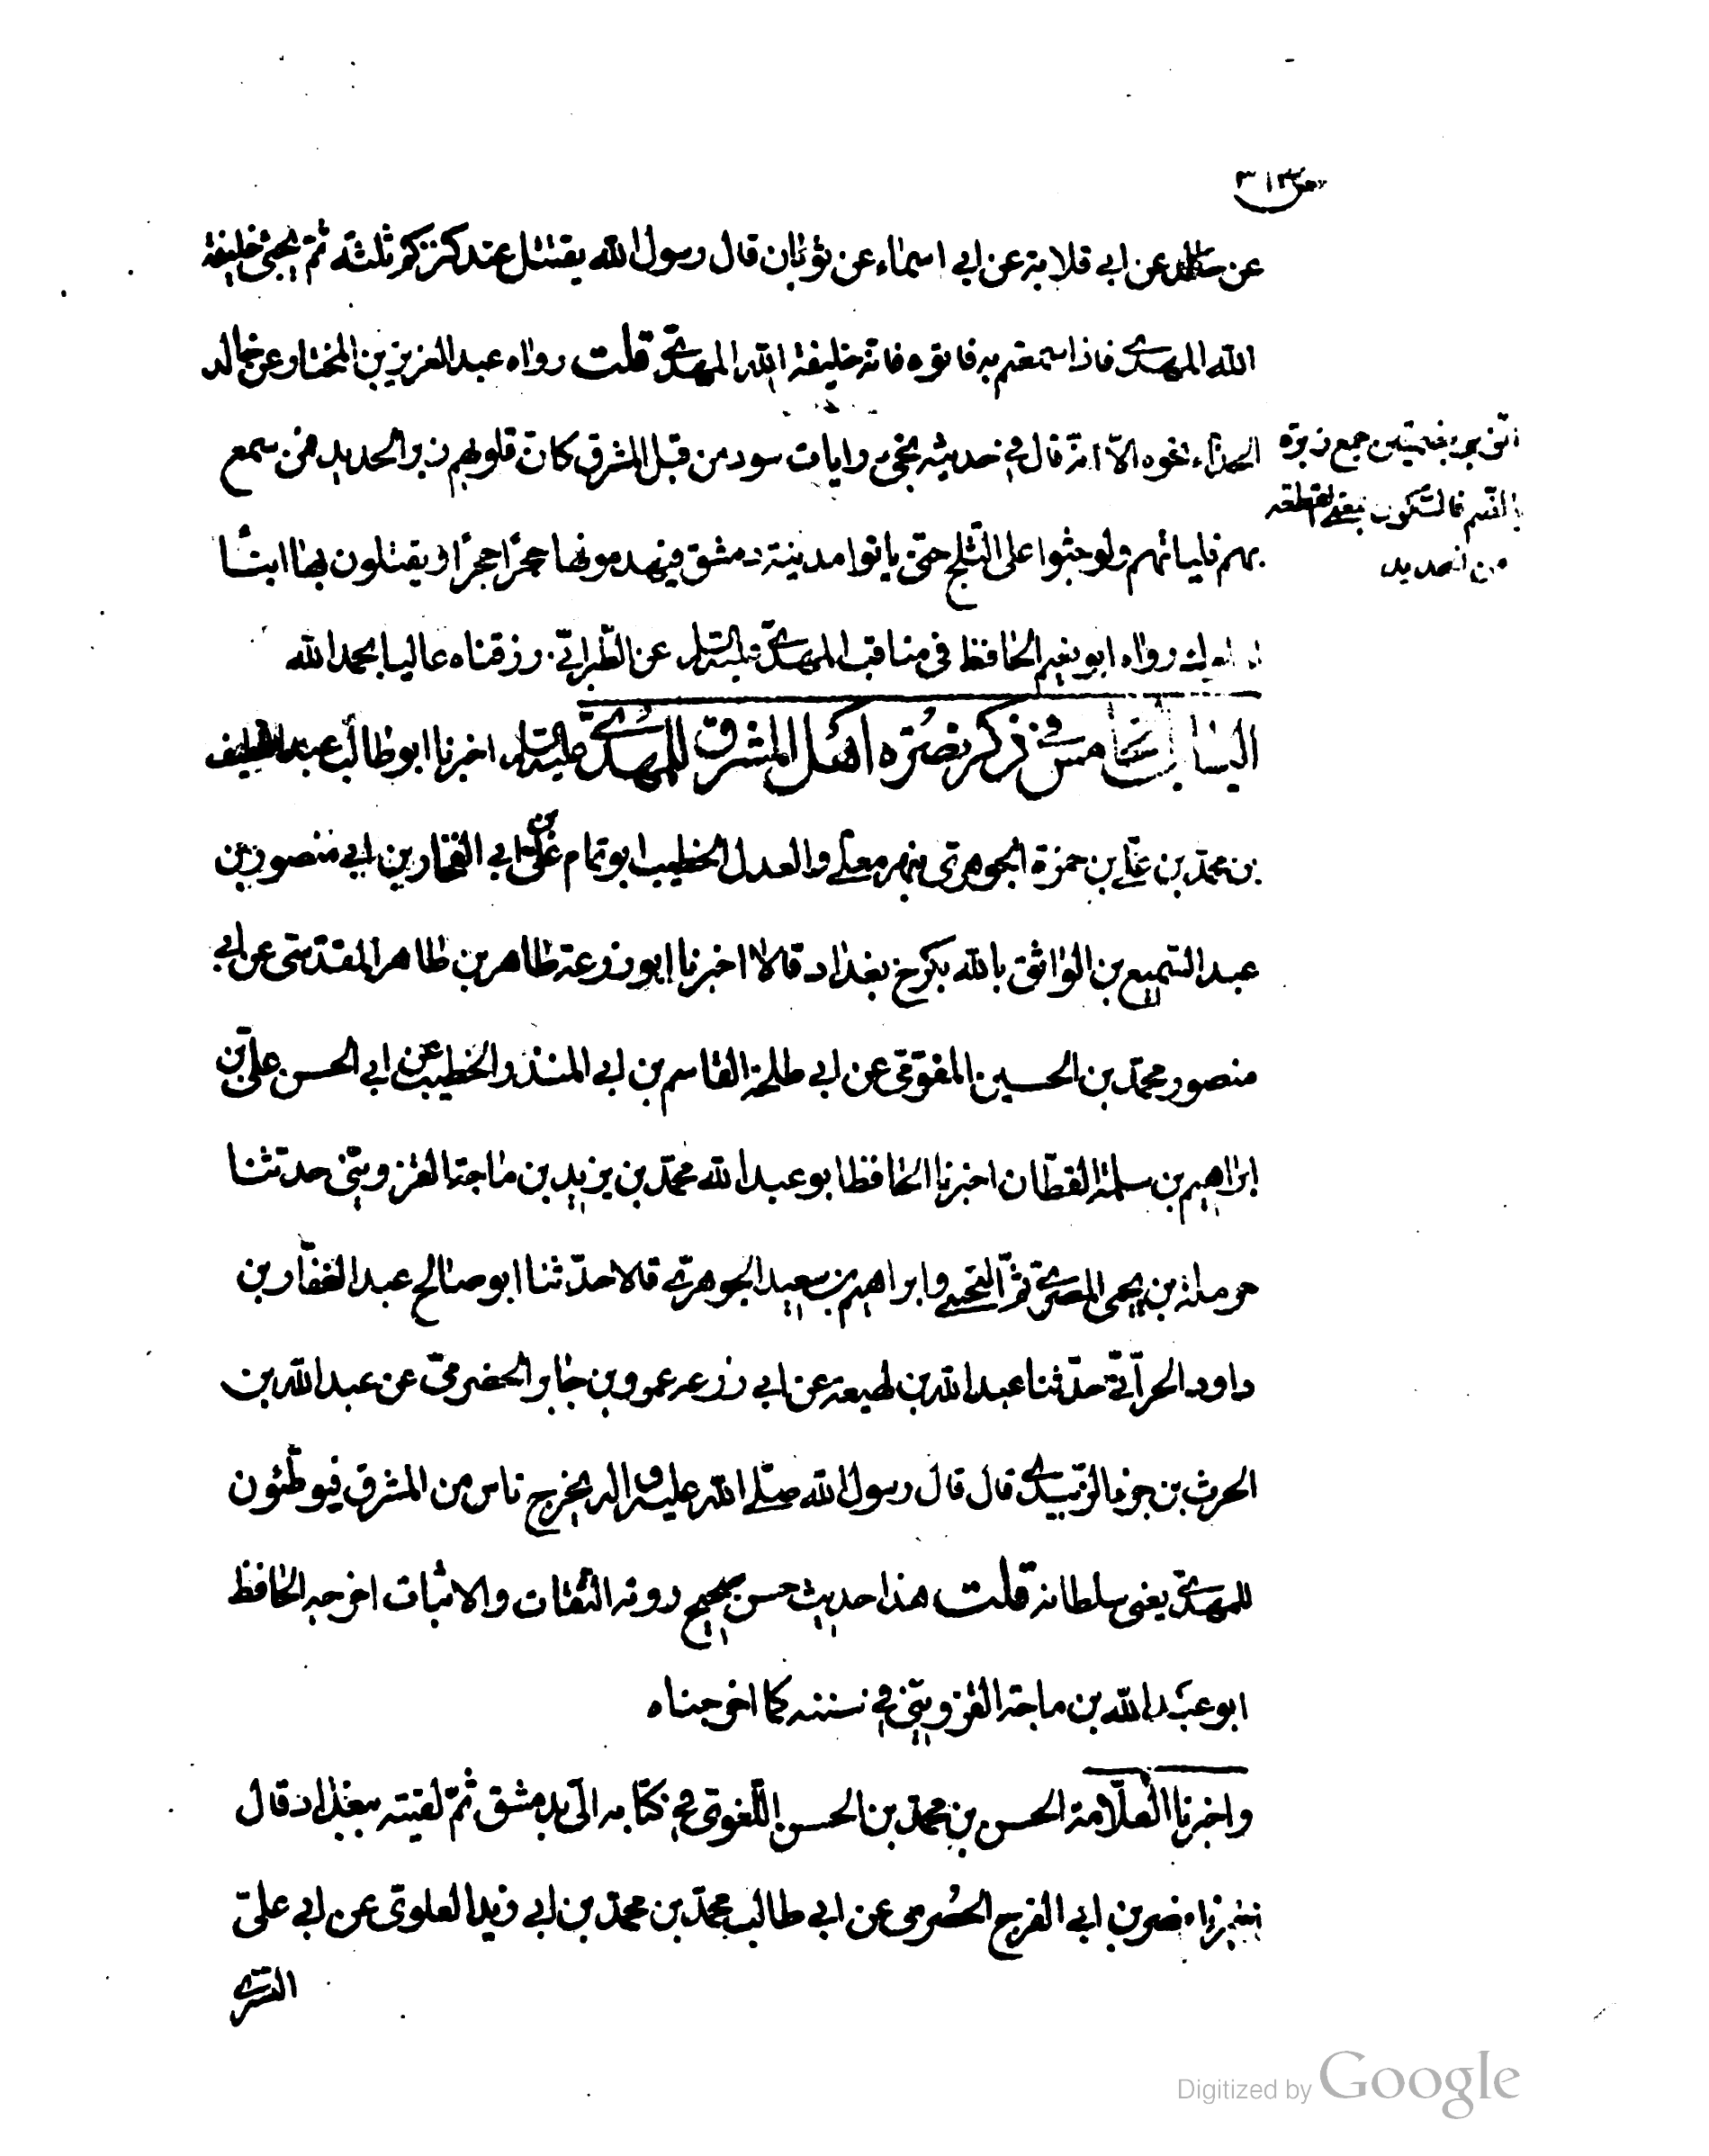 ص٣١٣
عن خالد عن ابي قلابة عن ابي اسماء عن ثوبان قال رسول الله يقتتل عند كنزكم ثلثة ثم يجئ خليفة
الله المهدي فاذا سمعتم به فاتوه فانه خليفة الله المهدي قلت رواه عبد العزيز بن المختار عن خالد
الحذاء نحوه الا انه قال في حديثه تجئ رايات سود من قبل المشرق كان قلوبهم زبر الحديد فمن سمع
الزبر بضمتين جمع زبرة
بالضم فالسكون بمعنى القطعة
من الحديد
بهم فلياتهم ولو حبوا على الثلج حتى ياتوا مدينة دمشق فيهدمونها حجرا حجرا ويقتلون بها ابناء
الملوك رواه ابو نعيم الحافظ في مناقب المهدي عليه السلام عن الطبراني رزقناه عاليا بحمد الله
الباب الخامس في ذكر نصرة اهل المشرق للمهدي عليه السلام اخبرنا ابو طالب عبد اللطيف
بن محمد بن علي بن حمزة الجوهري بنهر معلى والعدل الخطيب ابو تمام علي بن ابي الفخار بن ابي منصور بن
عبد السميع بن الواثق بالله بكرخ بغداد قالا اخبرنا ابو زرعة طاهر بن طاهر المقدسي عن ابي
منصور محمد بن الحسين المقومي عن ابي طلحة القاسم بن ابي المنذر الخطيب عن ابي الحسن علي بن
ابراهيم بن سلمة القطان اخبرنا الحافظ ابو عبد الله محمد بن يزيد بن ماجة القزويني حدثنا
حرملة بن يحيى المصري ثم التجيبي وابراهيم بن سعيد الجوهري قالا حدثنا ابو صالح عبد الغفار بن
داود الحراني حدثنا عبد الله بن لهيعة عن ابي زرعه عمرو بن جابر الحضرمي عن عبد الله بن
الحرث بن جزء الزبيدي قال قال رسول الله صلى الله عليه واله يخرج ناس من المشرق فيوطئون
للمهدي يعني سلطانه قلت هذا حديث حسن صحيح روته الثقات والاثبات اخرجه الحافظ
ابو عبد الله بن ماجة القزويني في سننه كما اخرجناه
واخبرنا العلامة الحسن بن محمد بن الحسن اللغوي في كتابه الى بدمشق ثم لقيته ببغداد قال
اخبرنا نصر بن ابي الفرج الحصرمي عن ابي طالب محمد بن محمد بن ابي زيد العلوي عن ابي علي
التستري
Digitized by Google